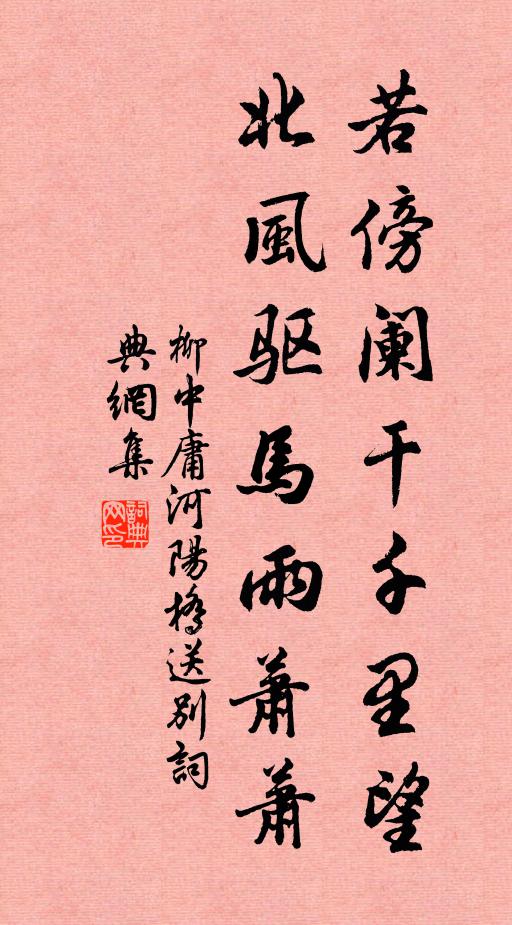 若傍阑干千里望
北風驱馬雨蕭蕭
柳中庸河陽橋送别詞
典網集
詞典
网印